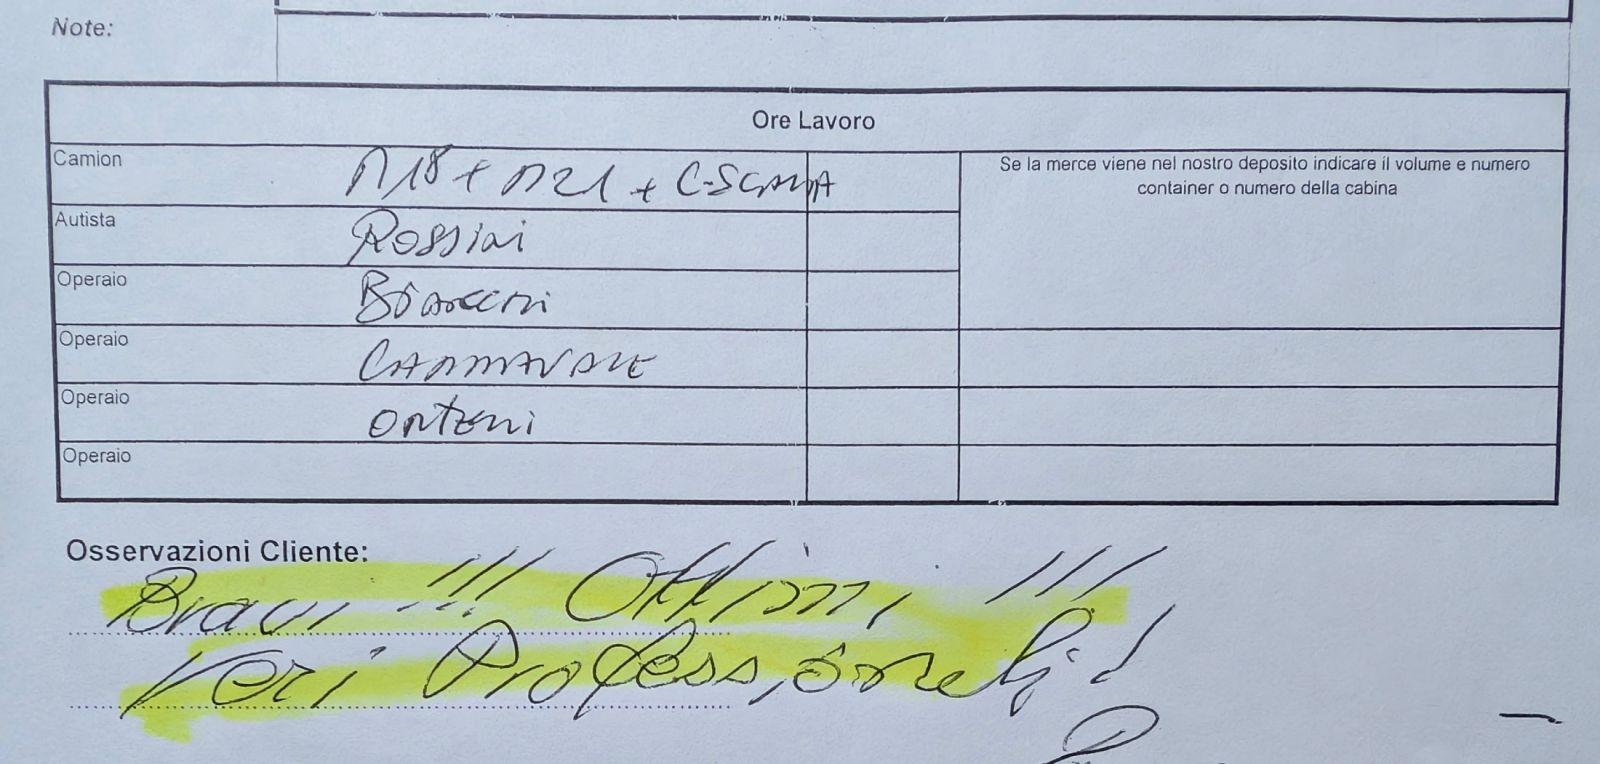 Note:
Ore Lavoro
Camion
Se la merce viene nel nostro deposito indicare il volume e numero
container o numero della cabina
Autista Rossini
Operaio
Operaio CARNEVALE
Operaio ORTENI
Operaio
Osservazioni Cliente:
Bravi !!! Ottimi !!!
Veri Professionali!